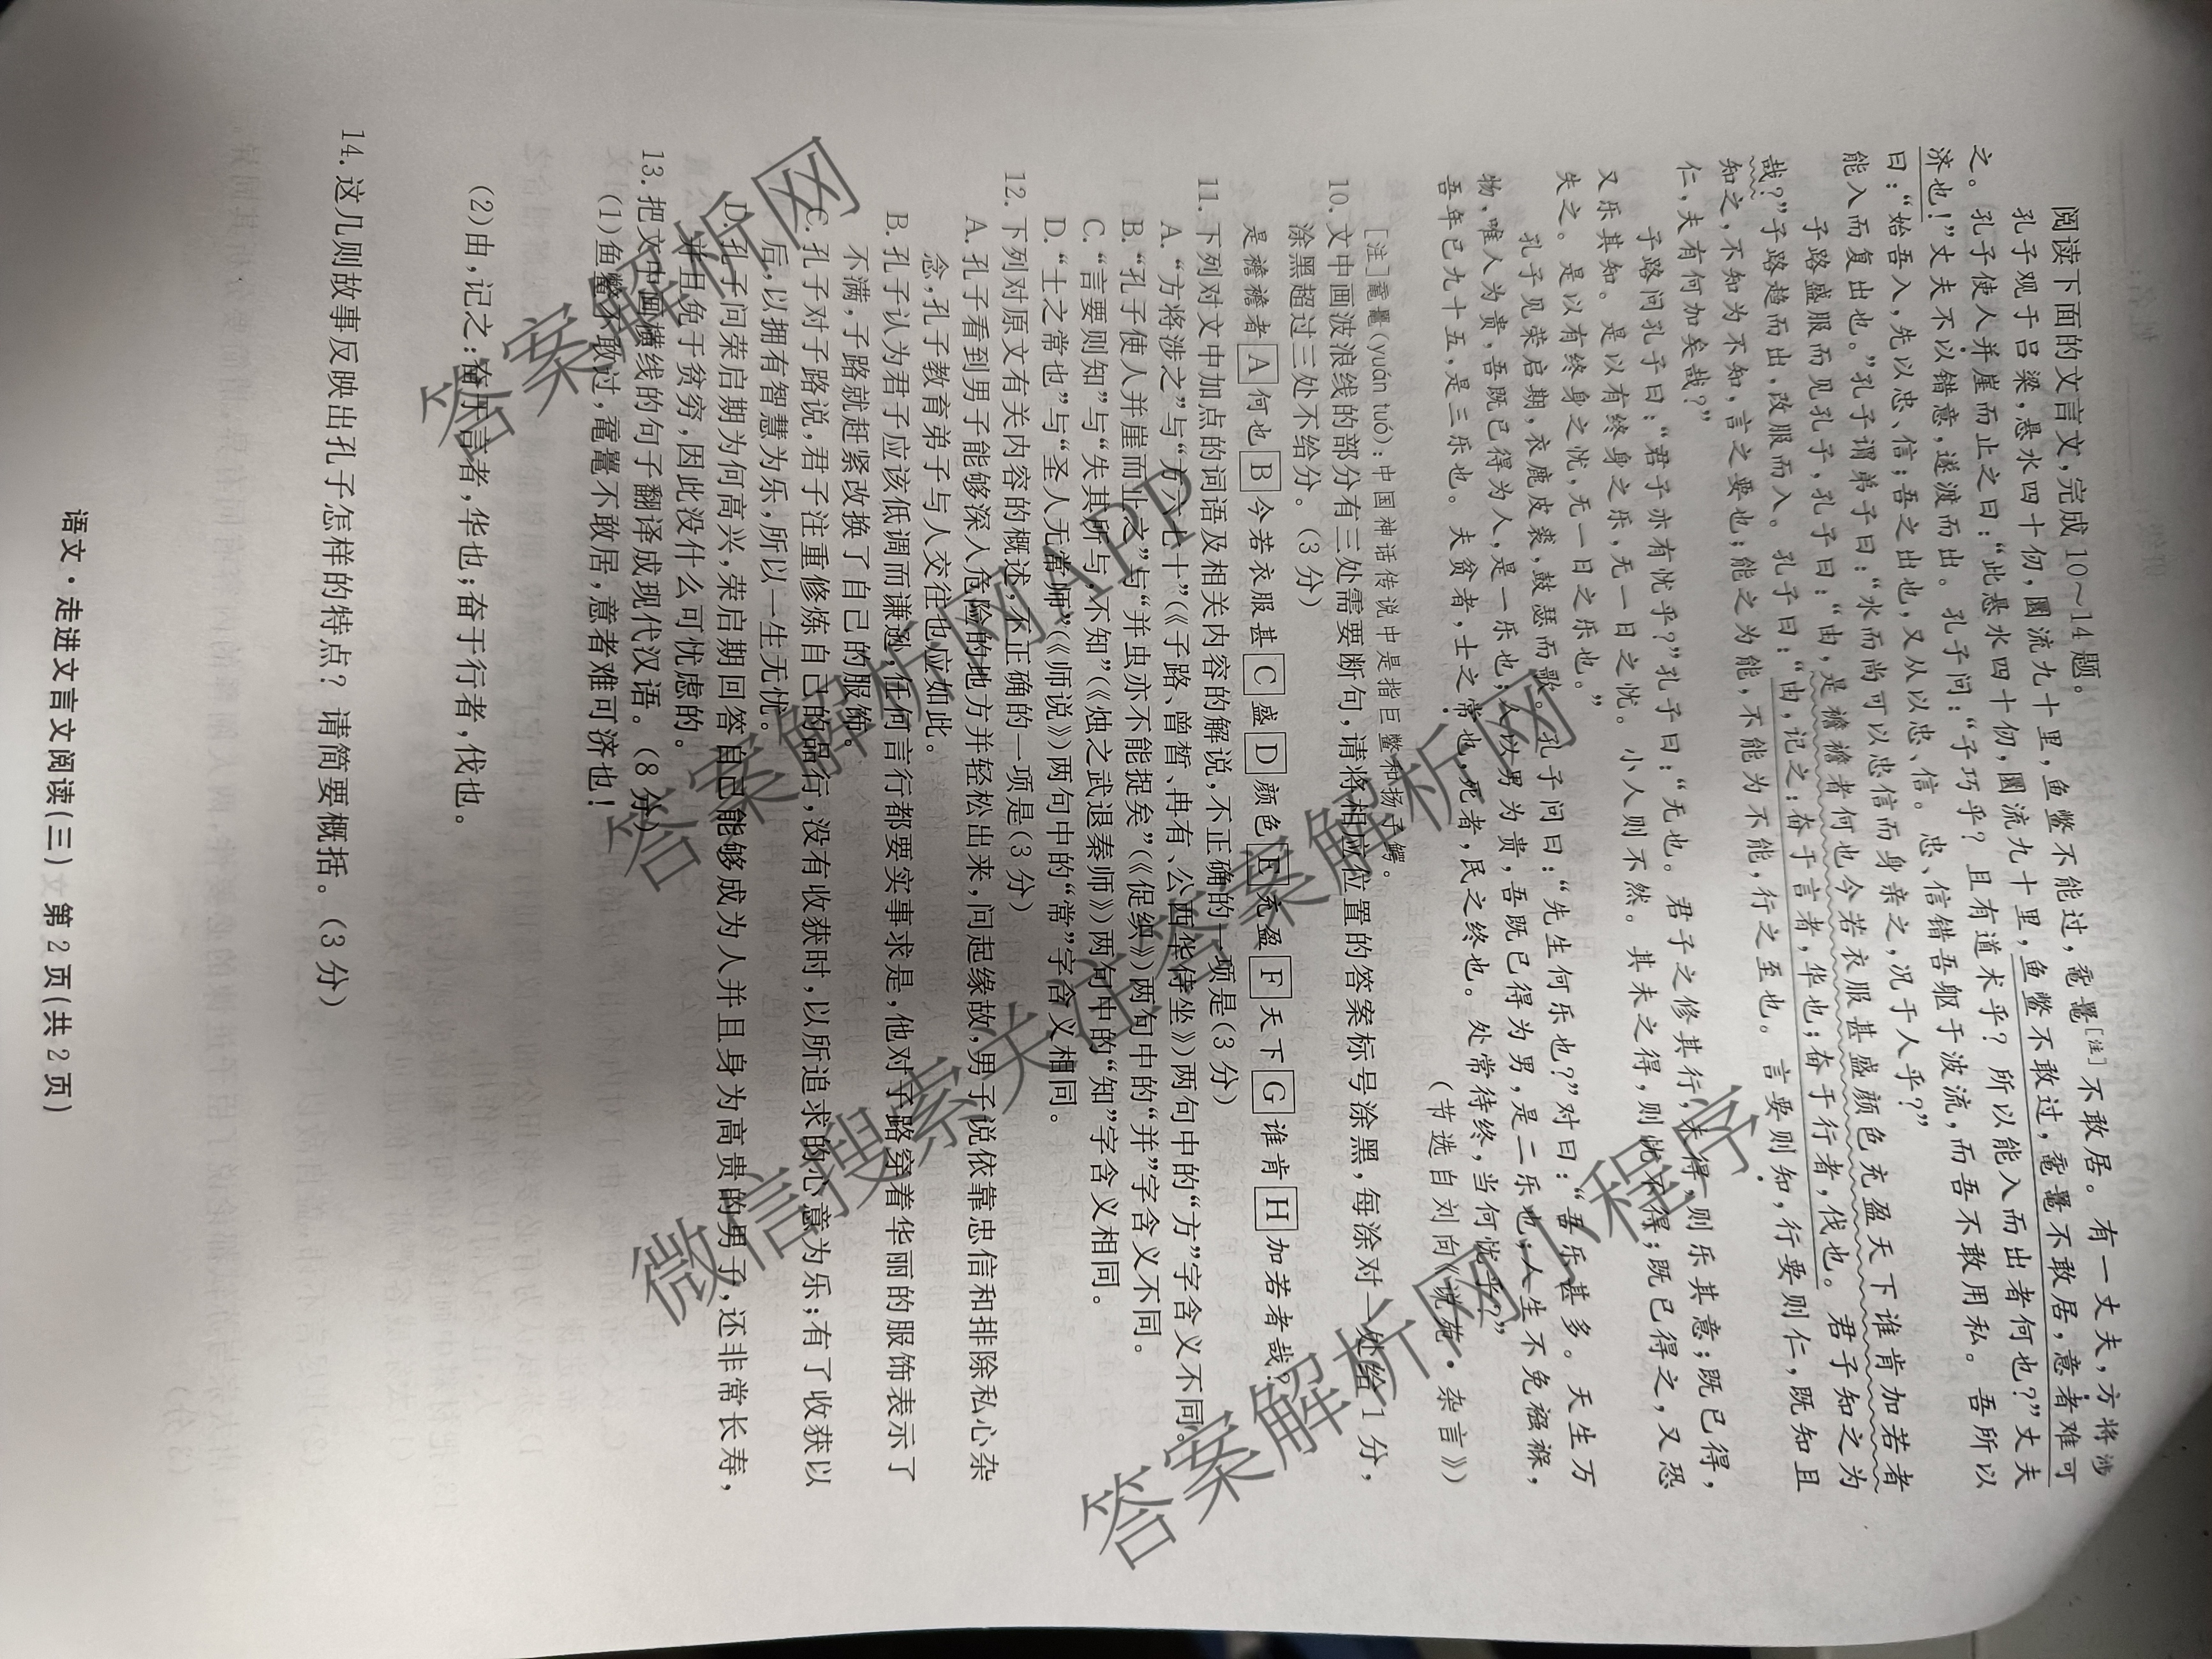 阅读下面的文言文，完成10～14题。
孔子观于吕梁，悬水四十仞，圜流九十里，鱼鳖不能过，鼋鼍[注]不敢居。有一丈夫，方将涉
之。孔子使人并崖而止之曰：“此悬水四十仞，圜流九十里，鱼鳖不敢过，鼋鼍不敢居，意者难可
济也！”丈夫不以错意，遂渡而出。孔子问：“子巧乎？且有道术乎？所以能入而出者何也？”丈夫
曰：“始吾入，先以忠、信；吾之出也，又从以忠、信。忠、信错吾躯于波流，而吾不敢用私。吾所以
能入而复出也。”孔子谓弟子曰：“水而尚可以忠信而身亲之，况于人乎？”
子路盛服而见孔子，孔子曰：“由，是襜襜者何也今若衣服甚盛颜色充盈天下谁肯加若者
哉？”子路趋而出，改服而入。孔子曰：“由，记之：奋于言者，华也；奋于行者，伐也。君子知之为
知之，不知为不知，言之要也；能之为能，不能为不能，行之至也。言要则知，行要则仁，既知且
仁，夫有何加矣哉？”
子路问孔子曰：“君子亦有忧乎？”孔子曰：“无也。君子之修其行，未得，则乐其意；既已得，
又乐其知。是以有终身之乐，无一日之忧。小人则不然。其未之得，则忧不得；既已得之，又恐
失之。是以有终身之忧，无一日之乐也。”
孔子见荣启期，衣鹿皮裘，鼓瑟而歌。孔子问曰：“先生何乐也？”对曰：“吾乐甚多。天生万
物，唯人为贵，吾既已得为人，是一乐也；人以男为贵，吾既已得为男，是二乐也；人生不免襁褓，
吾年已九十五，是三乐也。夫贫者，士之常也，死者，民之终也。处常待终，当何忧乎？”
（节选自刘向《说苑·杂言》）
[注]鼋鼍（yuán tuó）：中国神话传说中是指巨鳖和扬子鳄。
10.文中画波浪线的部分有三处需要断句，请将相应位置的答案标号涂黑，每涂对一处给1分，
涂黑超过三处不给分。（3分）
是襜襜者A何也B今若衣服甚C盛D颜色E充盈F天下G谁肯H加若者哉？
11.下列对文中加点的词语及相关内容的解说，不正确的一项是（3分）
A.“方将涉之”与“方六七十”（《子路、曾皙、冉有、公西华侍坐》）两句中的“方”字含义不同。
B.“孔子使人并崖而止之”与“并虫亦不能捉矣”（《促织》）两句中的“并”字含义不同。
C.“言要则知”与“失其所与，不知”（《烛之武退秦师》）两句中的“知”字含义相同。
D.“士之常也”与“圣人无常师”（《师说》）两句中的“常”字含义相同。
12.下列对原文有关内容的概述，不正确的一项是（3分）
A.孔子看到男子能够深入危险的地方并轻松出来，问起缘故，男子说依靠忠信和排除私心杂
念，孔子教育弟子与人交往也应如此。
B.孔子认为君子应该低调而谦逊，任何言行都要实事求是，他对子路穿着华丽的服饰表示了
不满，子路就赶紧改换了自己的服饰。
C.孔子对子路说，君子注重修炼自己的品行，没有收获时，以所追求的心意为乐；有了收获以
后，以拥有智慧为乐，所以一生无忧。
D.孔子问荣启期为何高兴，荣启期回答自己能够成为人并且身为高贵的男子，还非常长寿，
并且免于贫穷，因此没什么可忧虑的。
13.把文中画横线的句子翻译成现代汉语。（8分）
（1）鱼鳖不敢过，鼋鼍不敢居，意者难可济也！
（2）由，记之：奋于言者，华也；奋于行者，伐也。
14.这几则故事反映出孔子怎样的特点？请简要概括。（3分）
语文·走进文言文阅读（三） 第2页（共2页）
答案解析网
答案解析网APP
微信搜索关注答案解析网
答案解析网小程序